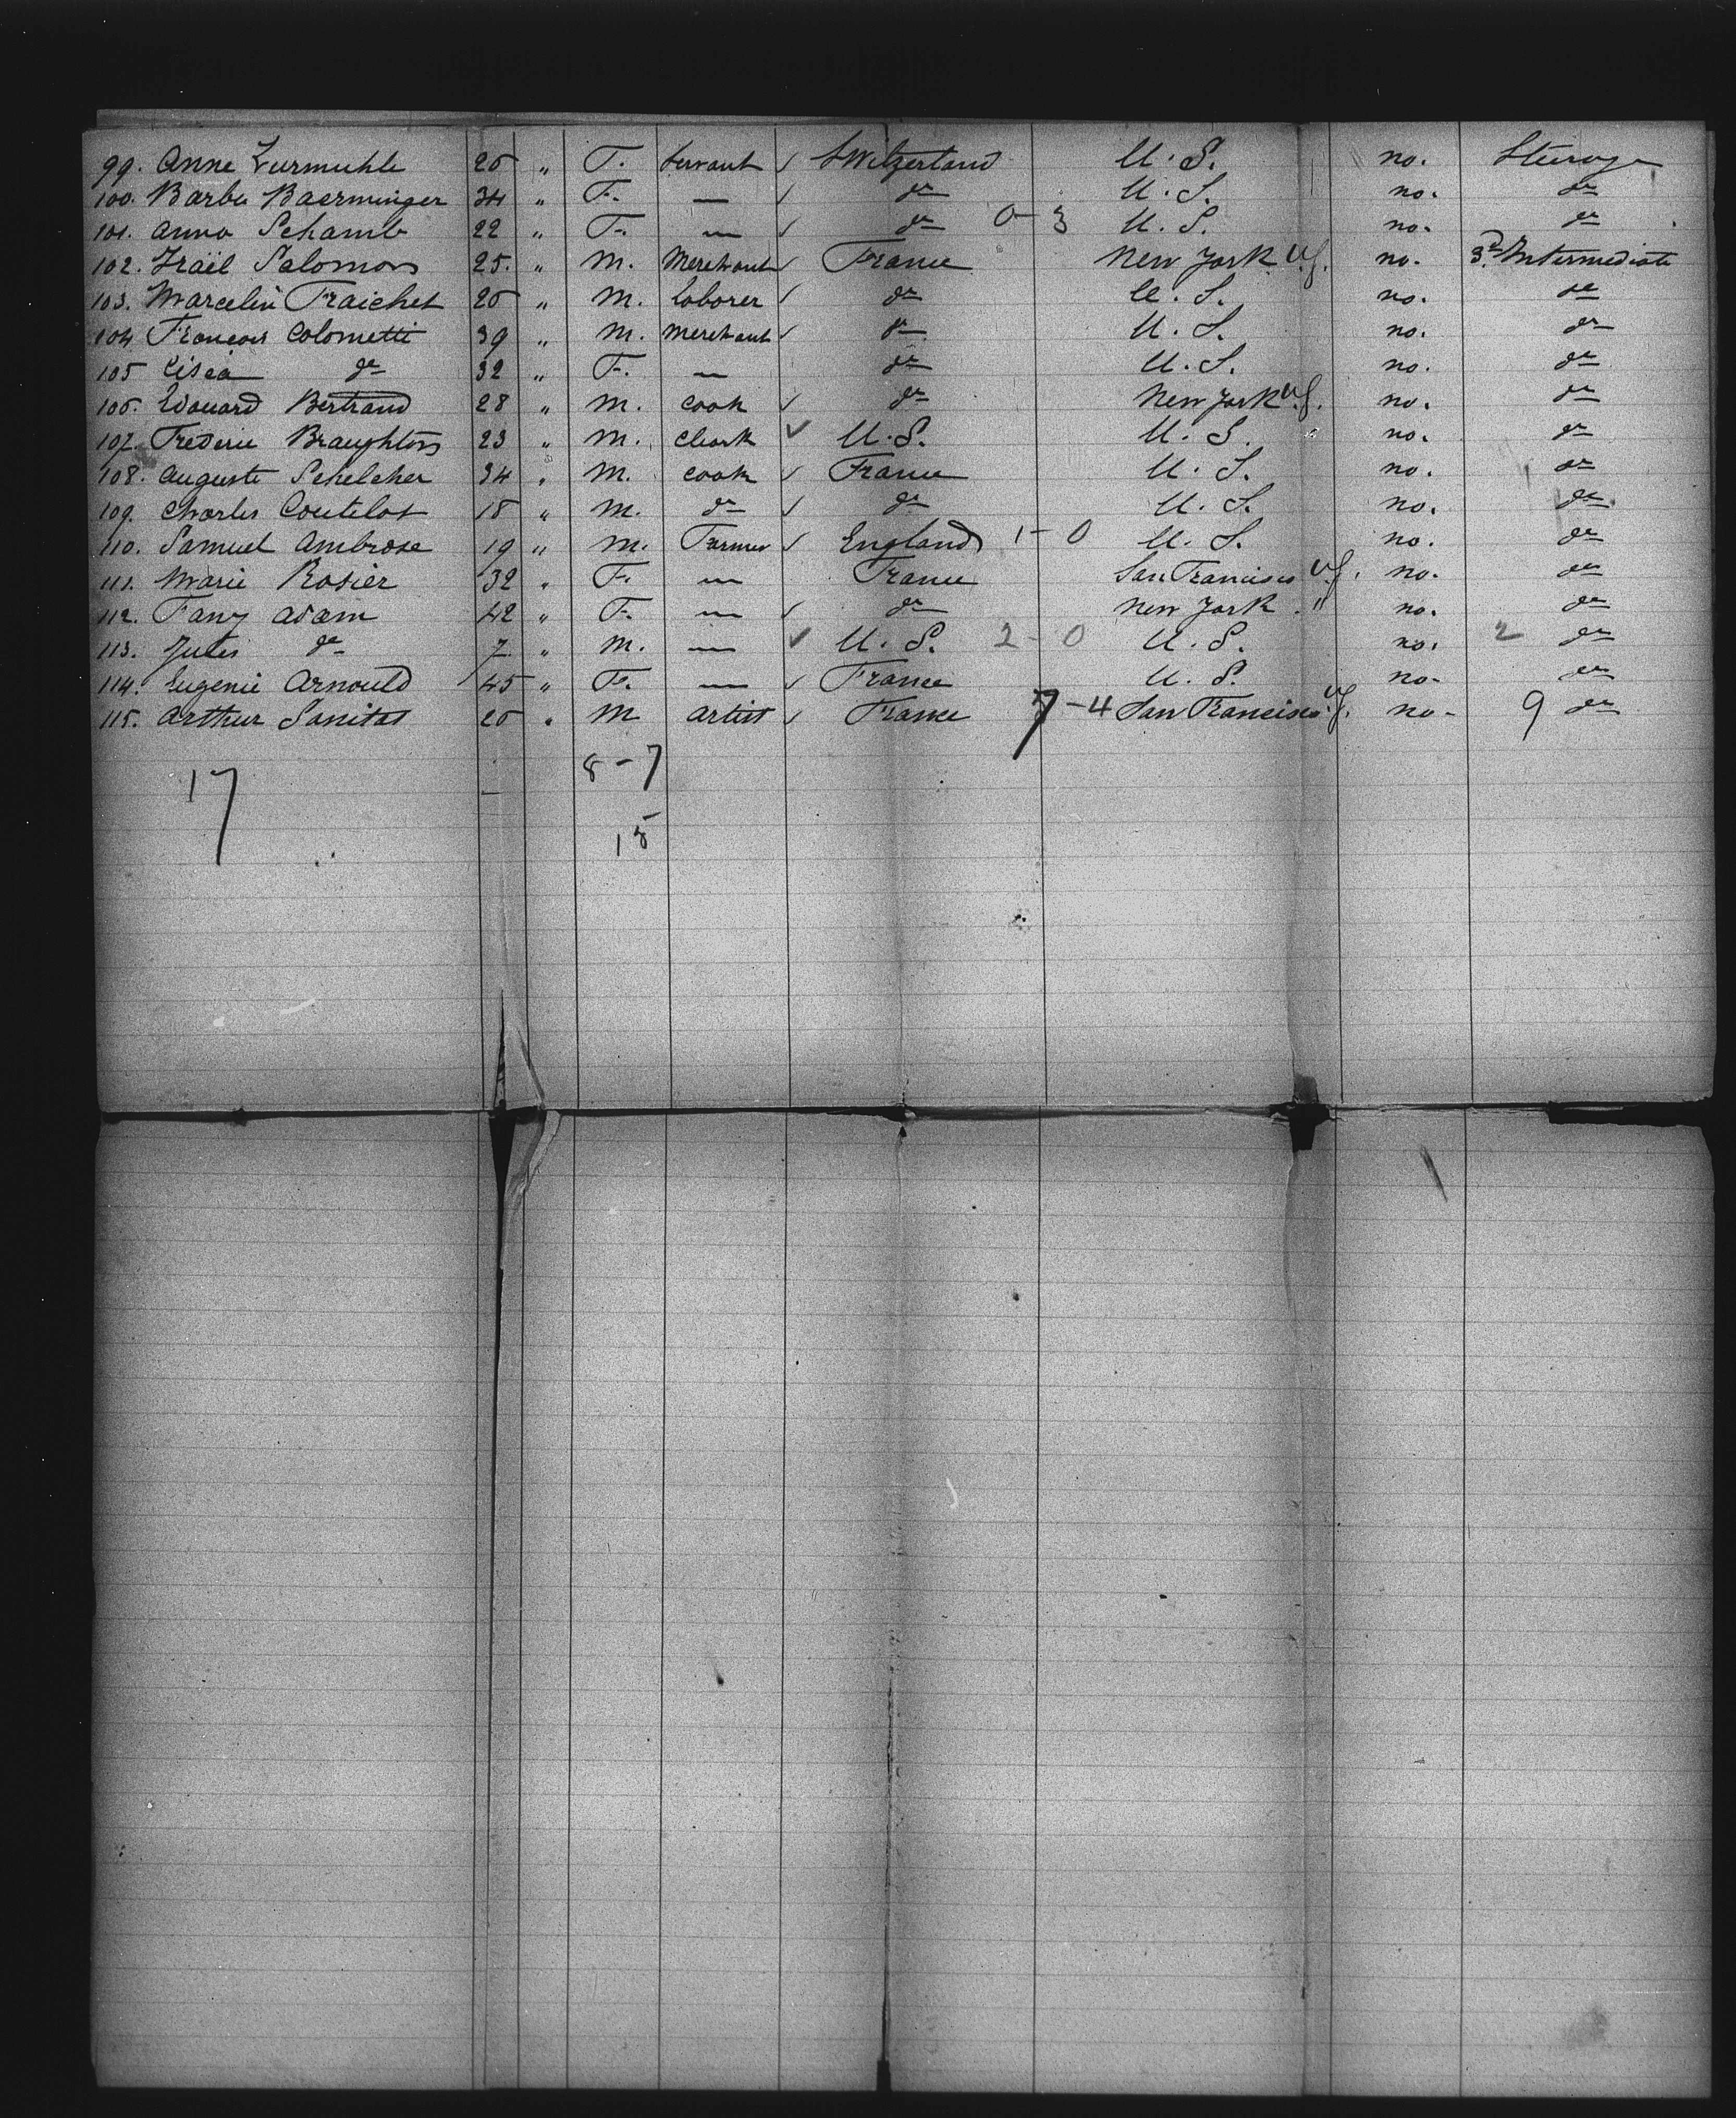 99. Anne Zurmuhle 20 " F. Servant ✓ Switzerland U. S. no. Steerage
100. Barbe Baerminger 34 " F. — ✓ do U. S. no. do
101. Anna Schamb 22 " F. — ✓ do 0 - 3 U. S. no. do
102. Izail Salomons 25. " M. Merchant ✓ France New York U.S. no. 3d Intermediate
103. Marcelin Fraichet 20 " M. laborer ✓ do U. S. no. do
104 Francois Colometti 39 " M. Merchant ✓ do U. S. no. do
105 Lisea do 32 " F. — do U. S. no. do
106. Edouard Bertrand 28 " M. Cook ✓ do New York U.S. no. do
107. Frederic Braughtons 23 " M. Clerk ✓ U. S. U. S. no. do
108. Auguste Schelcher 34 " M. Cook ✓ France U. S. no. do
109. Charles Coutelot 18 " M. do ✓ do U. S. no. do
110. Samuel Ambrose 19 " M. Farmer ✓ England 1 - 0 U. S. no. do
111. Marie Rosier 32 " F. — France San Francisco U.S. no. do
112. Fany Adam 42 " F. — ✓ do New York " no. do
113. Jules do 7 " M. — ✓ U. S. 2 - 0 U. S. no. 2 do
114. Eugenie Arnould 45 " F. — ✓ France U. S. no. do
115. Arthur Sanitas 20 " M Artist ✓ France 7 - 4 San Francisco U.S. no - 9 do
17 8 - 7
15